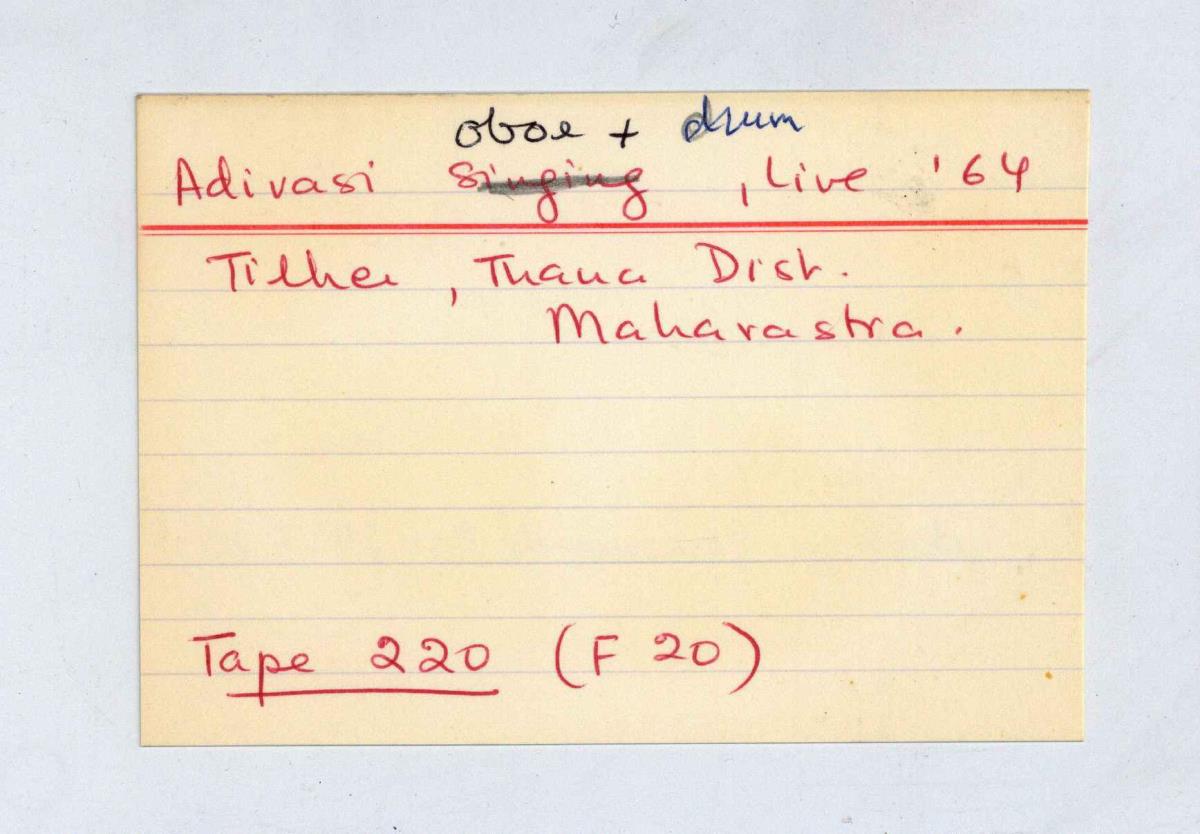 oboe + drum
Adivasi singing, Live '64
Tilher, Thana Dist.
Maharastra.
Tape 220 (F 20)